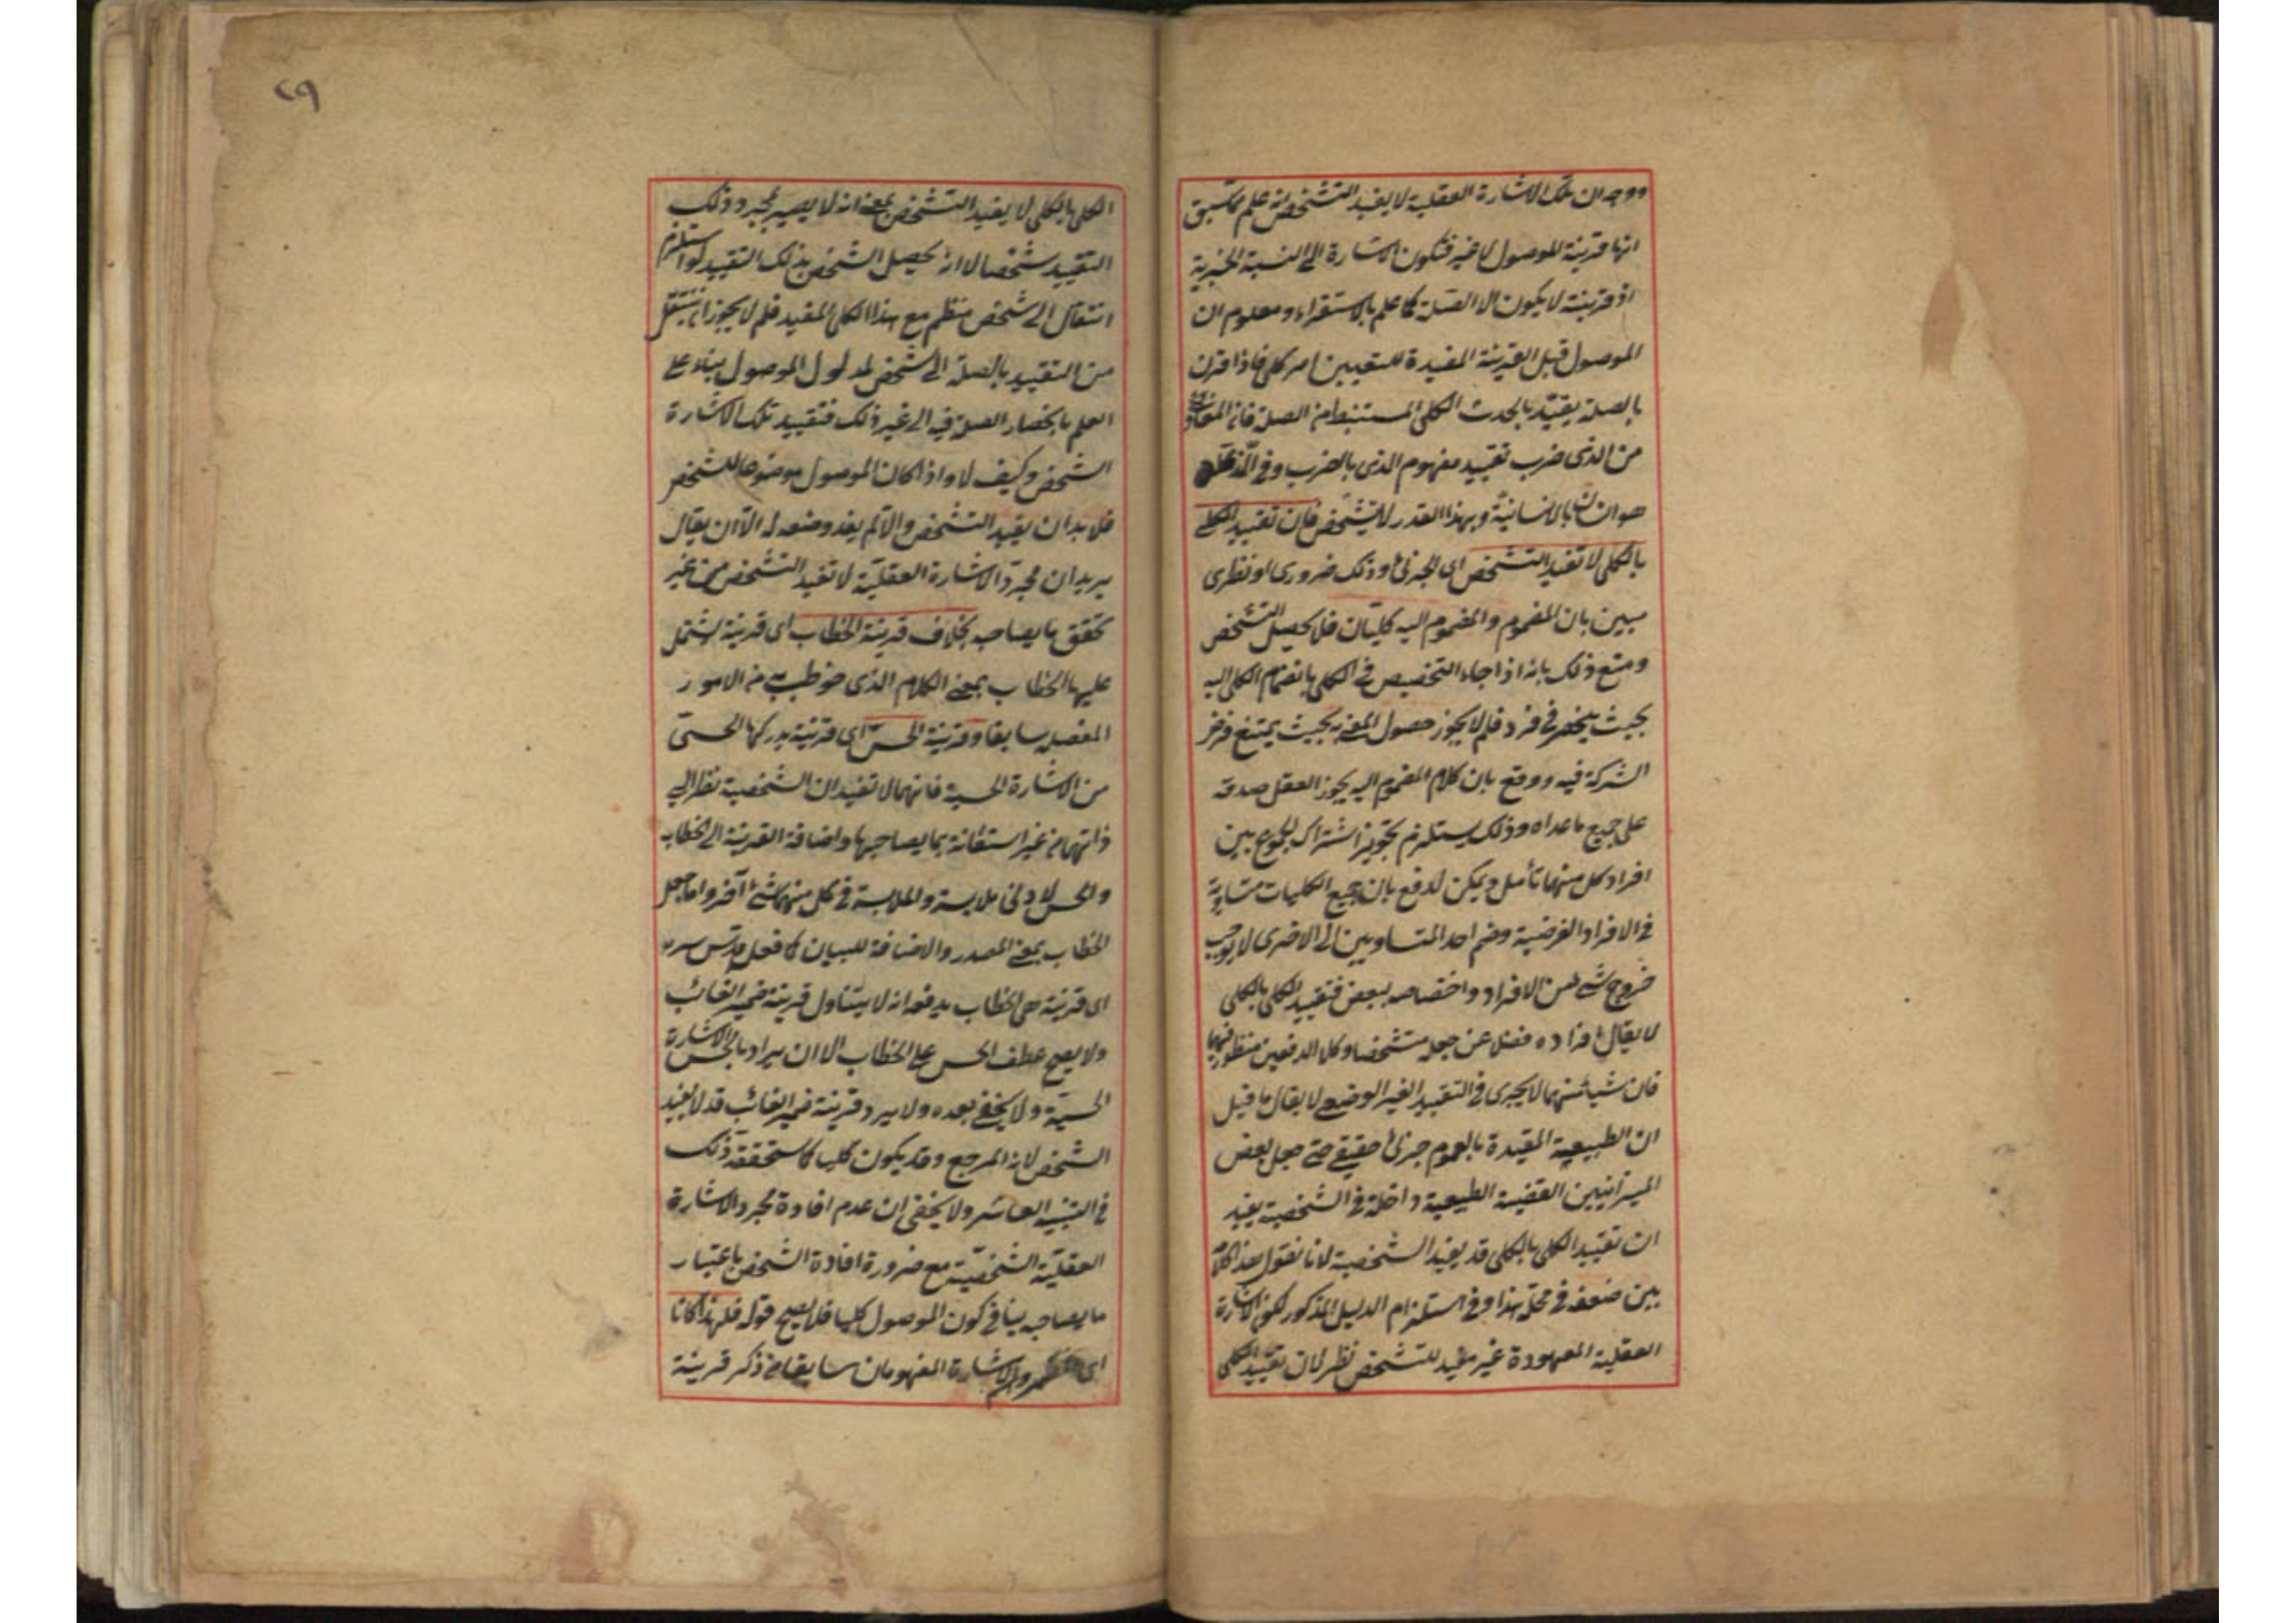 ووجه ان تلك الاشارة العقلية لا يفيد التشخص انه علم مما سبق
انها قرينة الموصول لا غير فتكون الاشارة الى النسبة الخبرية
اذ قرينة لا يكون الا الصلة كما علم بالاستقراء ومعلوم ان
الموصول قبل القرينة المفيدة للتعيين امر كلى فاذا قرن
بالصلة يقيد بالحدث الكلى المستنبط من الصلة فان المفاد
من الذى ضرب تقييد مفهوم الذى بالضرب وفى الذى
هو انسان بالانسانية وبهذا القدر لا يتشخص فان تقييد الكلى
بالكلى لا تفيد التشخص اى الجزئى وذلك ضرورى او نظرى
مبين بان المضموم والمضموم اليه كليان فلا يحصل التشخص
ومنع ذلك بانه اذا جاء التخصيص فى الكلى بانضمام الكلى اليه
بحيث ينحصر فى فرد فلم لا يجوز حصول المفهوم بحيث يمتنع فرض
الشركة فيه ودفع بان كلام المضموم اليه يجوز العقل صدقه
على جميع ما عداه وذلك يستلزم تجويز اشتراك المجموع بين
افراد كل منهما تأمل ويمكن الدفع بان جميع الكليات متساوية
فى الافراد الفرضية وضم احد المتساويين الى الاخرى لا يوجب
خروج شئ من الافراد واختصاصه ببعض فتقييد الكلى بالكلى
لا يقال افراده فضلا عن جعله متشخصا وكلا الدفعين منظور فيهما
فان شيأ منهما لا يجرى فى التقييد الغير الوضعى لا يقال ما قيل
ان الطبيعية المقيدة بالعموم جزئى حقيقى حتى جعل بعض
الميزانيين القضية الطبيعية داخلة فى الشخصية يفيد
ان تقييد الكلى بالكلى قد يفيد الشخصية لانا نقول هذا كلام
بين ضعفه فى محله هذا وفى استلزام الدليل المذكور لكون الاشارة
العقلية المعهودة غير مفيد للتشخص نظر لان تقييد الكلى
٢٩
الكلى بالكلى لا يفيد التشخص بمعنى انه لا يصير بمجرد ذلك
التقييد شخصا لا انه يحصل الشخص بذلك التقييد لو استلزم
انتقال الى شخص منظم مع هذا الكلى المقيد فلم لا يجوز ان ينتقل
من التقييد بالصلة الى شخص لمدلول الموصول بناء على
العلم بانحصار الصلة فيه الى غير ذلك فتقييد تلك الاشارة
الشخص وكيف لا واذا كان الموصول موضوعا للشخص
فلا بد ان يفيد التشخص والا لم يفد وضعه له الا ان يقال
يريد ان مجرد الاشارة العقلية لا تفيد التشخص من غير
تحقق ما يصاحبه بخلاف قرينة الخطاب اى قرينة يشتمل
عليها الخطاب بمعنى الكلام الذى خوطب به من الامور
المفصلة سابقا وقرينة الحس اى قرينة يدركها الحسى
من الاشارة الحسية فانهما لا تفيدان الشخصية نظرا الى
ذاتهما من غير استعانة بما يصاحبها واضافة القرينة الى الخطاب
والحس لادنى ملابسة والملابسة فى كل منهما شئ آخر واما جعل
الخطاب بمعنى المصدر والاضافة للبيان كما فعل قدس سره
اى قرينة هى الخطاب يدفعه انه لا يتناول قرينة ضمير الغائب
ولا يصح عطف الحس على الخطاب الا ان يراد بالحس الاشارة
الحسية ولا يخفى بعده ولا يرد قرينة ضمير الغائب قد لا يفيد
الشخص لانه المرجع وقد يكون كليا كما ستحققه ذلك
فى التنبيه العاشر ولا يخفى ان عدم افادة مجرد الاشارة
العقلية الشخصية مع ضرورة افادة الشخص باعتبار
ما يصاحبه ينافى كون الموصول كليا فلا يصح قوله فلهذا كانا
اى والاشارة المفهومان سابقا من ذكر قرينة